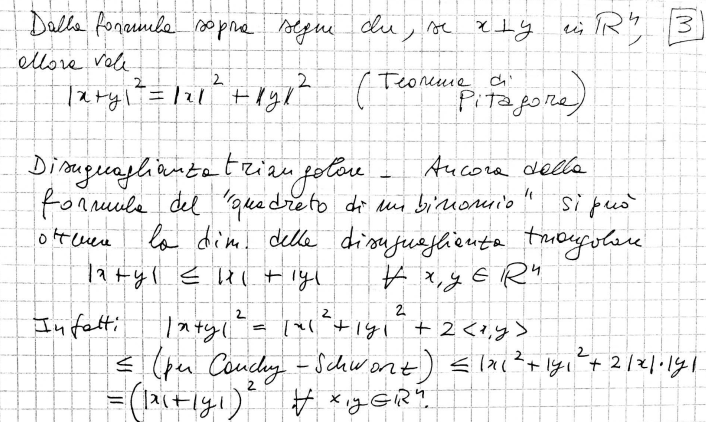 Dalla formula sopra segue che, se x⊥y in ℝⁿ, 3
allora vale
|x+y|² = |x|² + |y|² (Teorema di
Pitagora)
Disuguaglianza triangolare - Ancora dalla
formula del "quadrato di un binomio" si può
ottenere la dim. della disuguaglianza triangolare
|x+y| ≤ |x| + |y| ∀ x,y ∈ ℝⁿ
Infatti |x+y|² = |x|² + |y|² + 2<x,y>
≤ (per Cauchy-Schwarz) ≤ |x|² + |y|² + 2|x|·|y|
= (|x|+|y|)² ∀ x,y ∈ ℝⁿ.